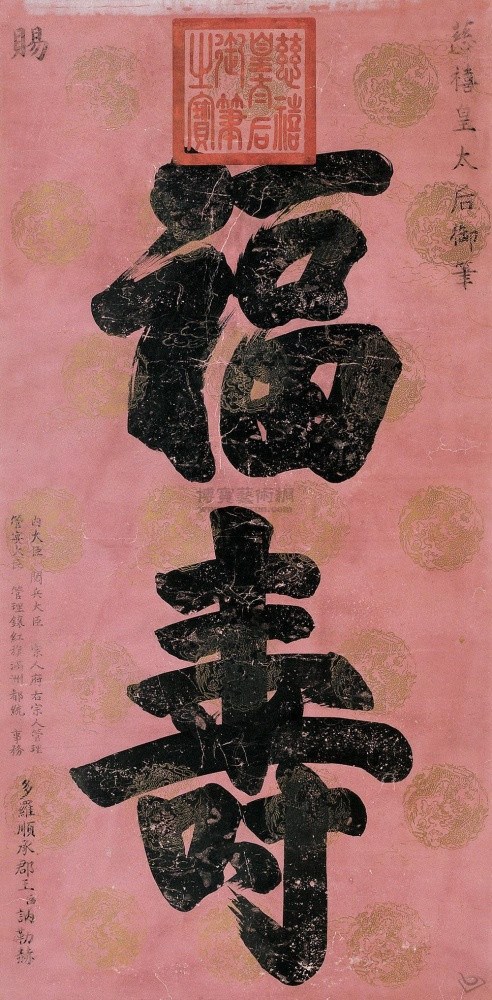 慈禧皇太后御筆
慈禧
皇太后
御筆
之寶
福壽
賜
內大臣 閱兵大臣 宗人府右宗人管理
管宴大臣 管理鑲紅旗滿洲都統 事務
多羅順承郡王臣訥勒赫
博寶藝術網